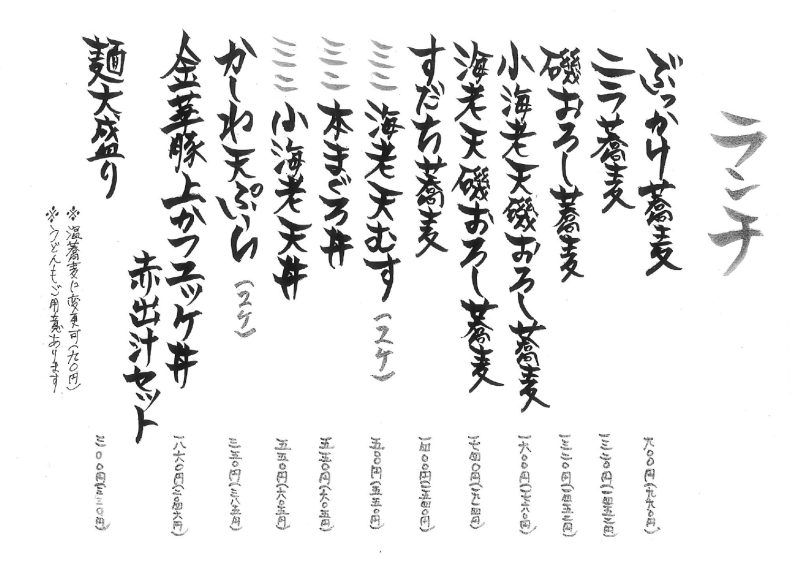 ランチ
ぶっかけ蕎麦 九〇〇円(九九〇円)
ニラ蕎麦 一三二〇円(一四五二円)
磯おろし蕎麦 一三二〇円(一四五二円)
小海老天磯おろし蕎麦 一六〇〇円(一七六〇円)
海老天磯おろし蕎麦 一七四〇円(一九一四円)
すだち蕎麦 一四〇〇円(一五四〇円)
ミニ海老天むす(2ケ) 五〇〇円(五五〇円)
ミニ本まぐろ丼 五五〇円(六〇五円)
ミニ小海老天丼 五五〇円(六〇五円)
かしわ天ぷら(2ケ) 三五〇円(三八五円)
金華豚上かつユッケ丼 一八六〇円(二〇四六円)
赤出汁セット
麺大盛り 三〇〇円(三三〇円)
※温蕎麦に変更可(九〇円)
※うどんもご用意あります